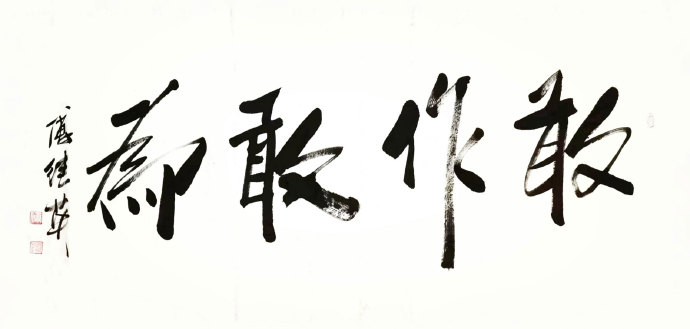 敢作敢為